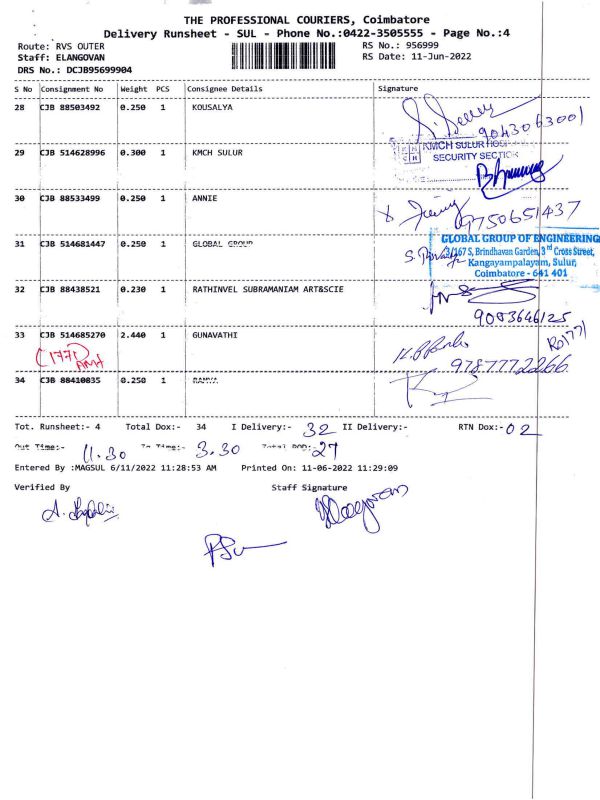 THE PROFESSIONAL COURIERS, Coimbatore
Delivery Runsheet - SUL - Phone No.:0422-3505555 - Page No.:4
Route: RVS OUTER RS No.: 956999
Staff: ELANGOVAN RS Date: 11-Jun-2022
DRS No.: DCJB95699904
S No Consignment No Weight PCS Consignee Details Signature
28 CJB 88503492 0.250 1 KOUSALYA
9043063001
29 CJB 514628996 0.300 1 KMCH SULUR
KMCH SULUR HOSPITAL
SECURITY SECTION
30 CJB 88533499 0.250 1 ANNIE
9750651437
31 CJB 514681447 0.250 1 GLOBAL GROUP
GLOBAL GROUP OF ENGINEERING
3/167 S, Brindhavan Garden, 3rd Cross Street,
Kangayampalayam, Sulur,
Coimbatore - 641 401
32 CJB 88438521 0.230 1 RATHINVEL SUBRAMANIAM ART&SCIE
9003646125
33 CJB 514685270 2.440 1 GUNAVATHI
1771
9787772266
Ro1771
34 CJB 88410835 0.250 1 RAMYA
Tot. Runsheet:- 4 Total Dox:- 34 I Delivery:- 32 II Delivery:- RTN Dox:- 02
Out Time:- 11.30 In Time:- 3.30 Total POD:- 27
Entered By :MAGSUL 6/11/2022 11:28:53 AM Printed On: 11-06-2022 11:29:09
Verified By Staff Signature